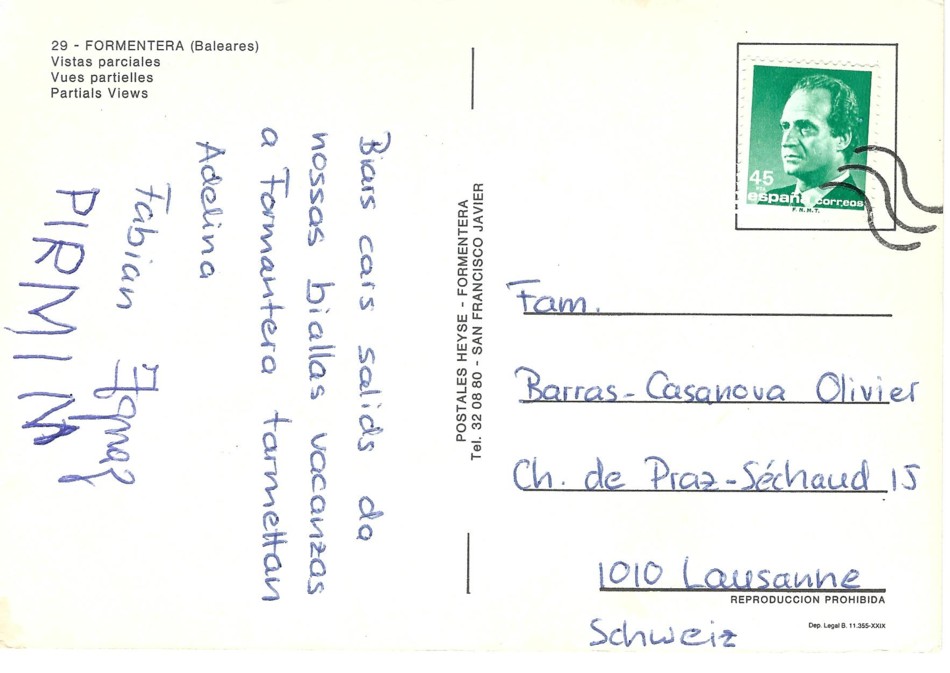 29 - FORMENTERA (Baleares)
Vistas parciales
Vues partielles
Partials Views
Biars cars salids da
nossas biallas vacanzas
a Formantera tarmettan
Adelina
Fabian Ignaz
PIRMIN
POSTALES HEYSE - FORMENTERA
Tel. 32 08 80 - SAN FRANCISCO JAVIER
45
PTA
españa correos
F.N.M.T.
Fam.
Barras-Casanova Olivier
Ch. de Praz-Séchaud 15
1010 Lausanne
REPRODUCCION PROHIBIDA
Dep. Legal B. 11.355-XXIX
Schweiz